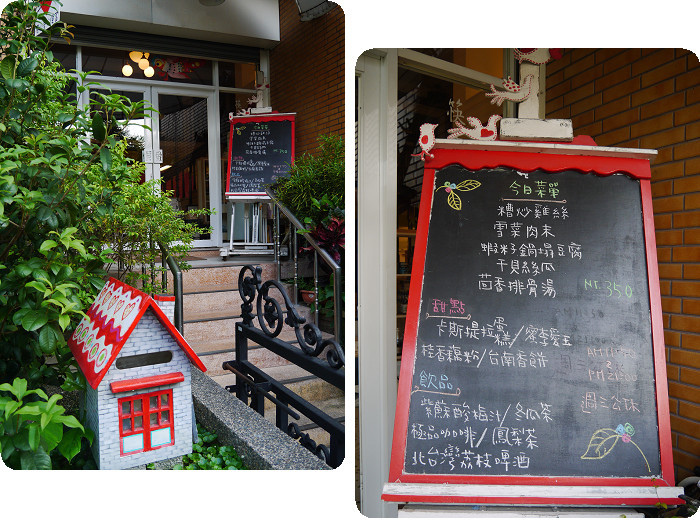 今日菜單
糟炒雞絲
雪菜肉末
蝦米子鍋塌豆腐
干貝絲瓜
茴香排骨湯
NT.350
甜點
卡斯提拉蛋糕/蜜李愛玉
桂香藕粉/台南香餅
飲品
紫蘇酸梅汁/冬瓜茶
極品咖啡/鳳梨茶
北台灣荔枝啤酒
週三公休